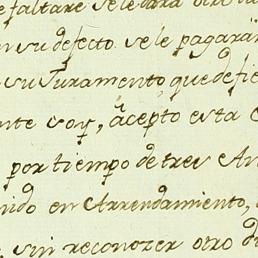 faltare se le dara otro
su defecto se le pagarà
su Juramento, que defie
nte soy, acepto esta
por tiempo de tres
ndo en Arrendamiento,
sin reconozer otro